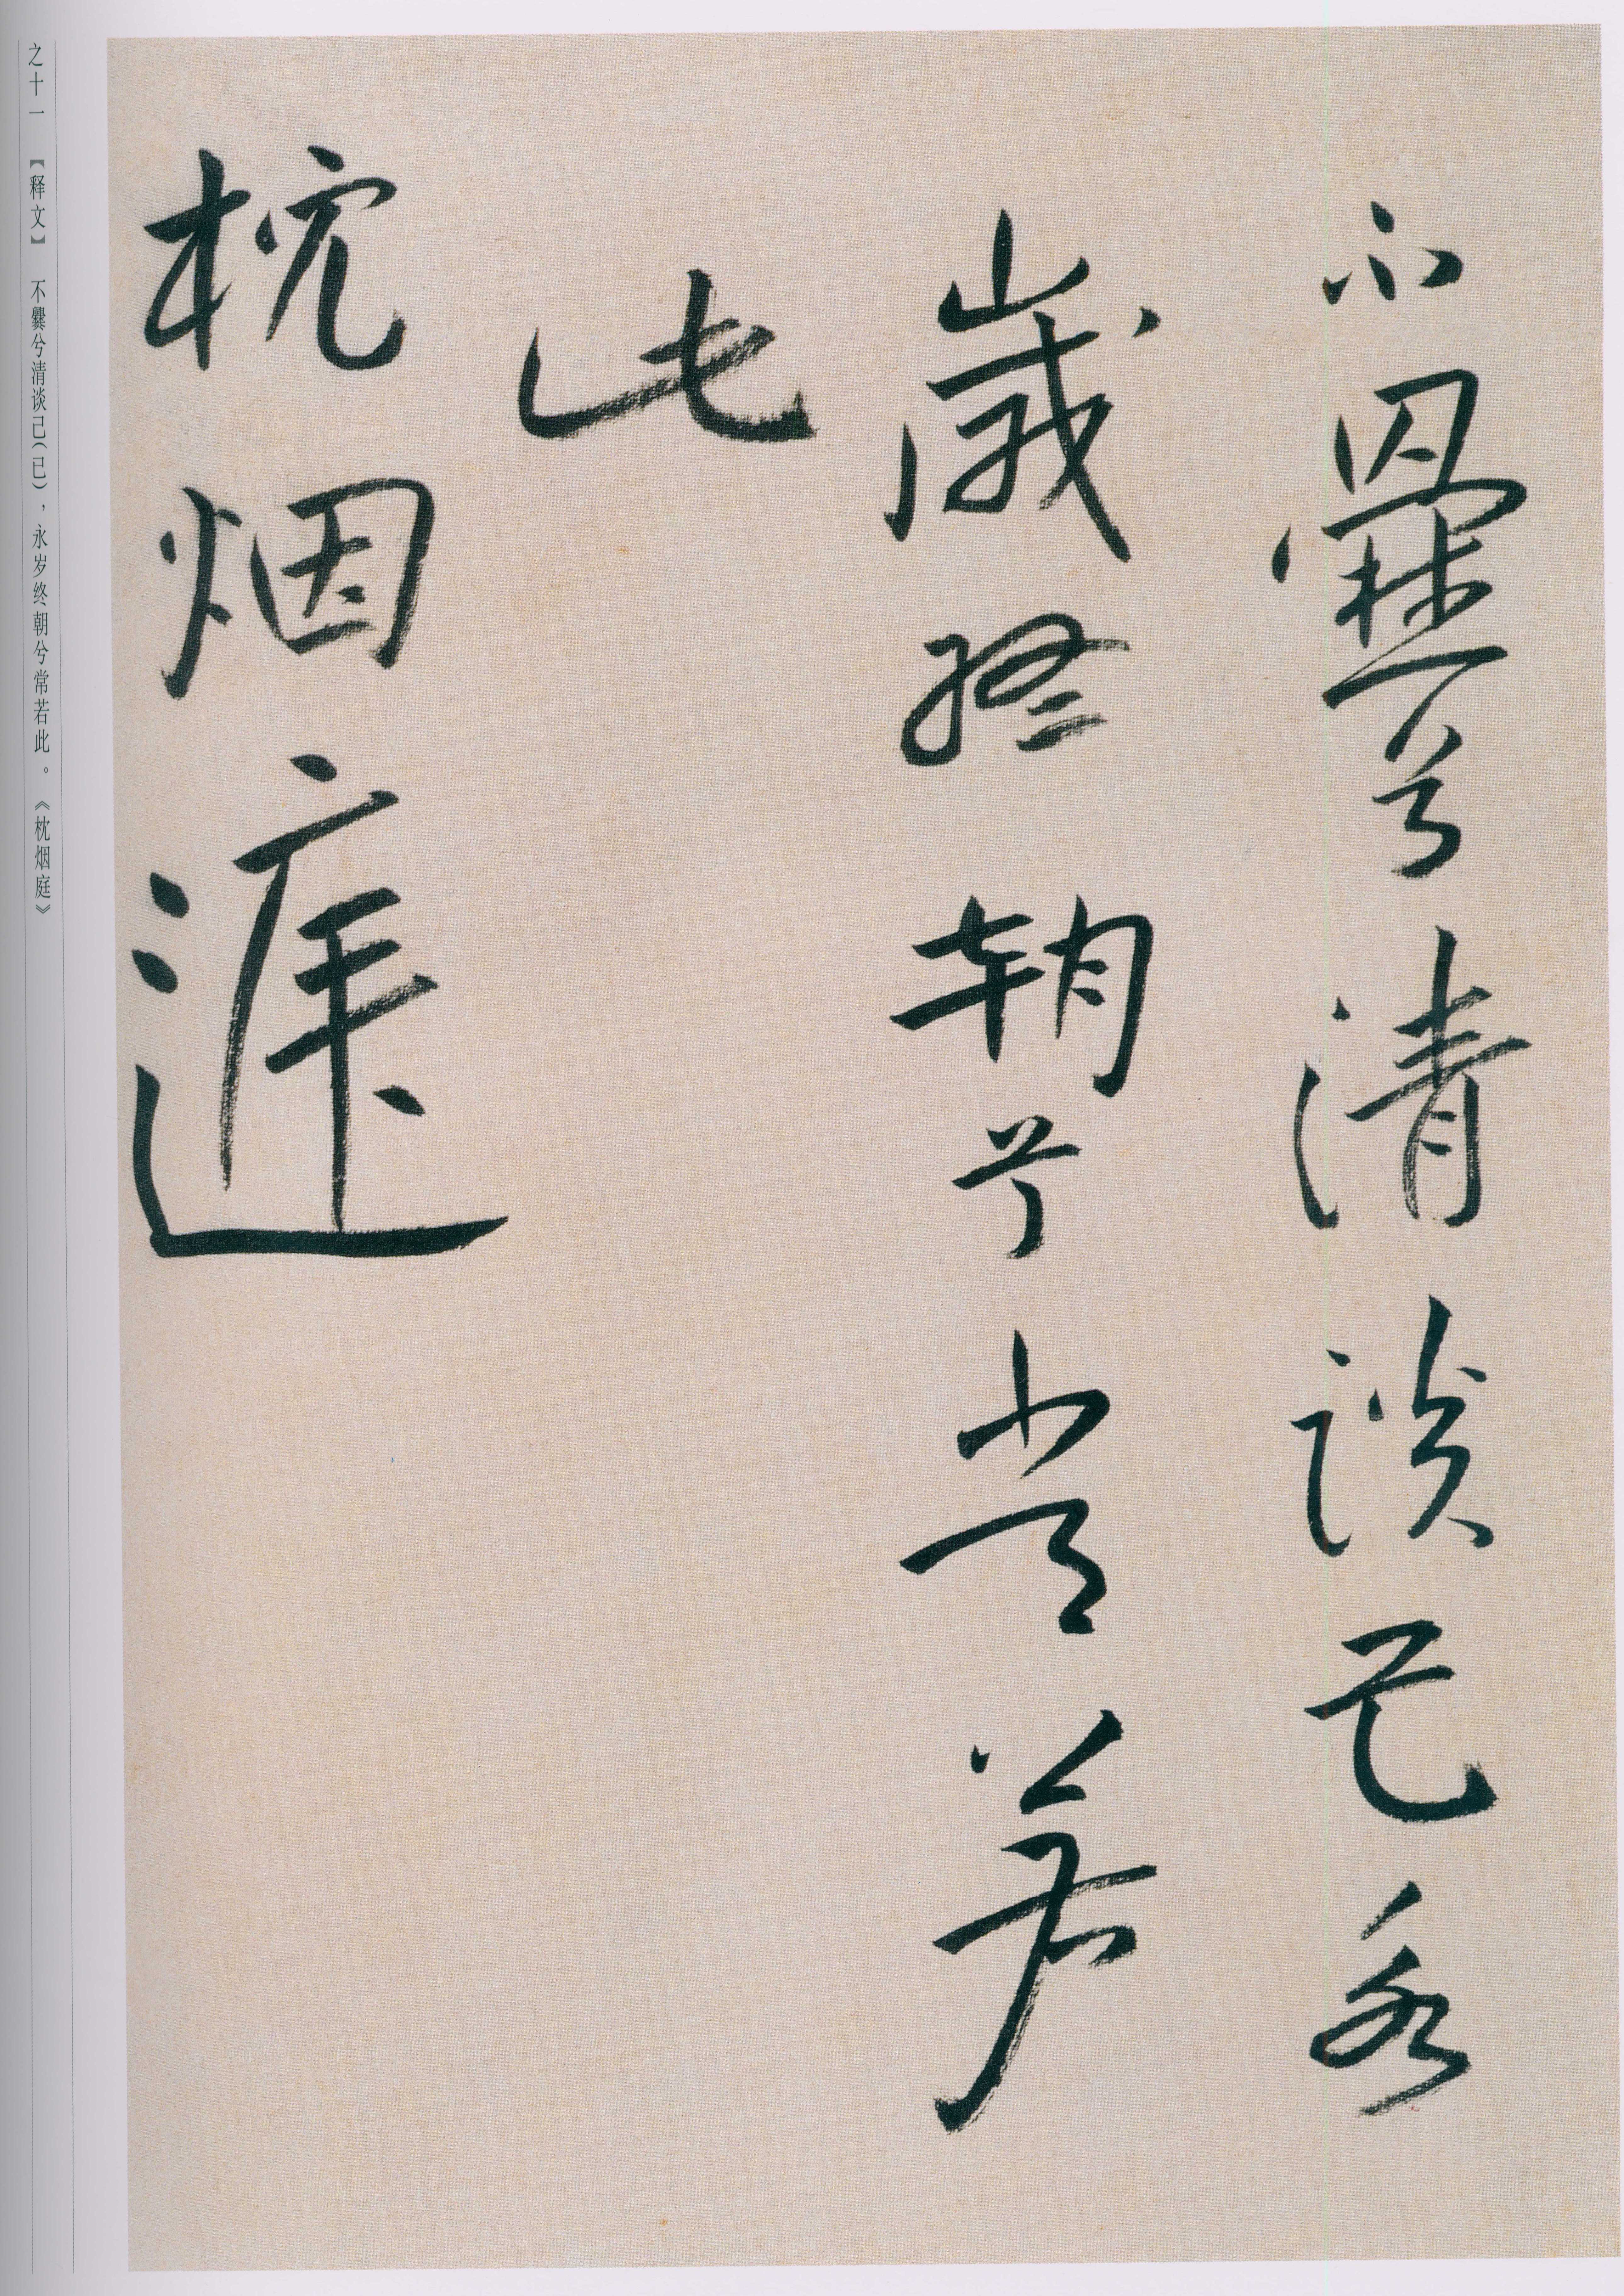 不爨兮清談己永
歲終朝兮常若
此
枕烟庭
之十一 【释文】 不爨兮清谈己(已)，永岁终朝兮常若此。《枕烟庭》